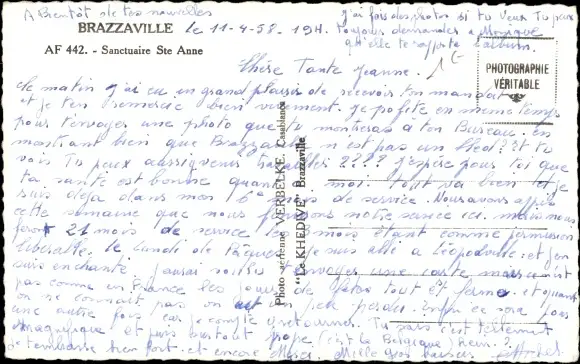 A Bientôt de tes nouvelles
j'ai fais des photos si tu veux Tu peux
toujours demander a Monique
qu'elle te rapporte l'album.
BRAZZAVILLE
le 11-4-58. 19H.
AF 442. - Sanctuaire Ste Anne
PHOTOGRAPHIE
VÉRITABLE
Chère Tante Jeanne.
Ce matin j'ai eu un grand plaisir de recevoir ton mandat
et je t'en remercie bien vivement. Je profite en même temps
pour t'envoyer une photo que tu montreras a ton Bureau en
montrant bien que Brazzaville n'est pas un Bled! Et tu
vois Tu peux aussi venir travailler ???? J'espère pour toi que
ta santé est bonne quant moi tout va bien et je
suis déja dans mon 6e de service. Nous avons appris
cette semaine que nous notre service ici. mais nous
ferons 21 mois de service 3 mois étant comme permission
libérable. le lundi de Pâques je suis allé a Léopoldville et j'en
suis enchanté. j'aurai voulu t'envoyer une carte mais c'est
pas comme en France les jours de fêtes tout est fermé et quand
on ne connait pas on est un peu perdu. Enfin ce sera pour
une autre fois car je compte y retourner. Tu sais c'est tellement
magnifique et puis surtout propre (c'est la Belgique hein!)
je t'embrasse bien fort et encore Merci. Mille gros baisers
Photo aérienne VERBECKE, Casablanca
"Le KHEDIVE" Brazzaville